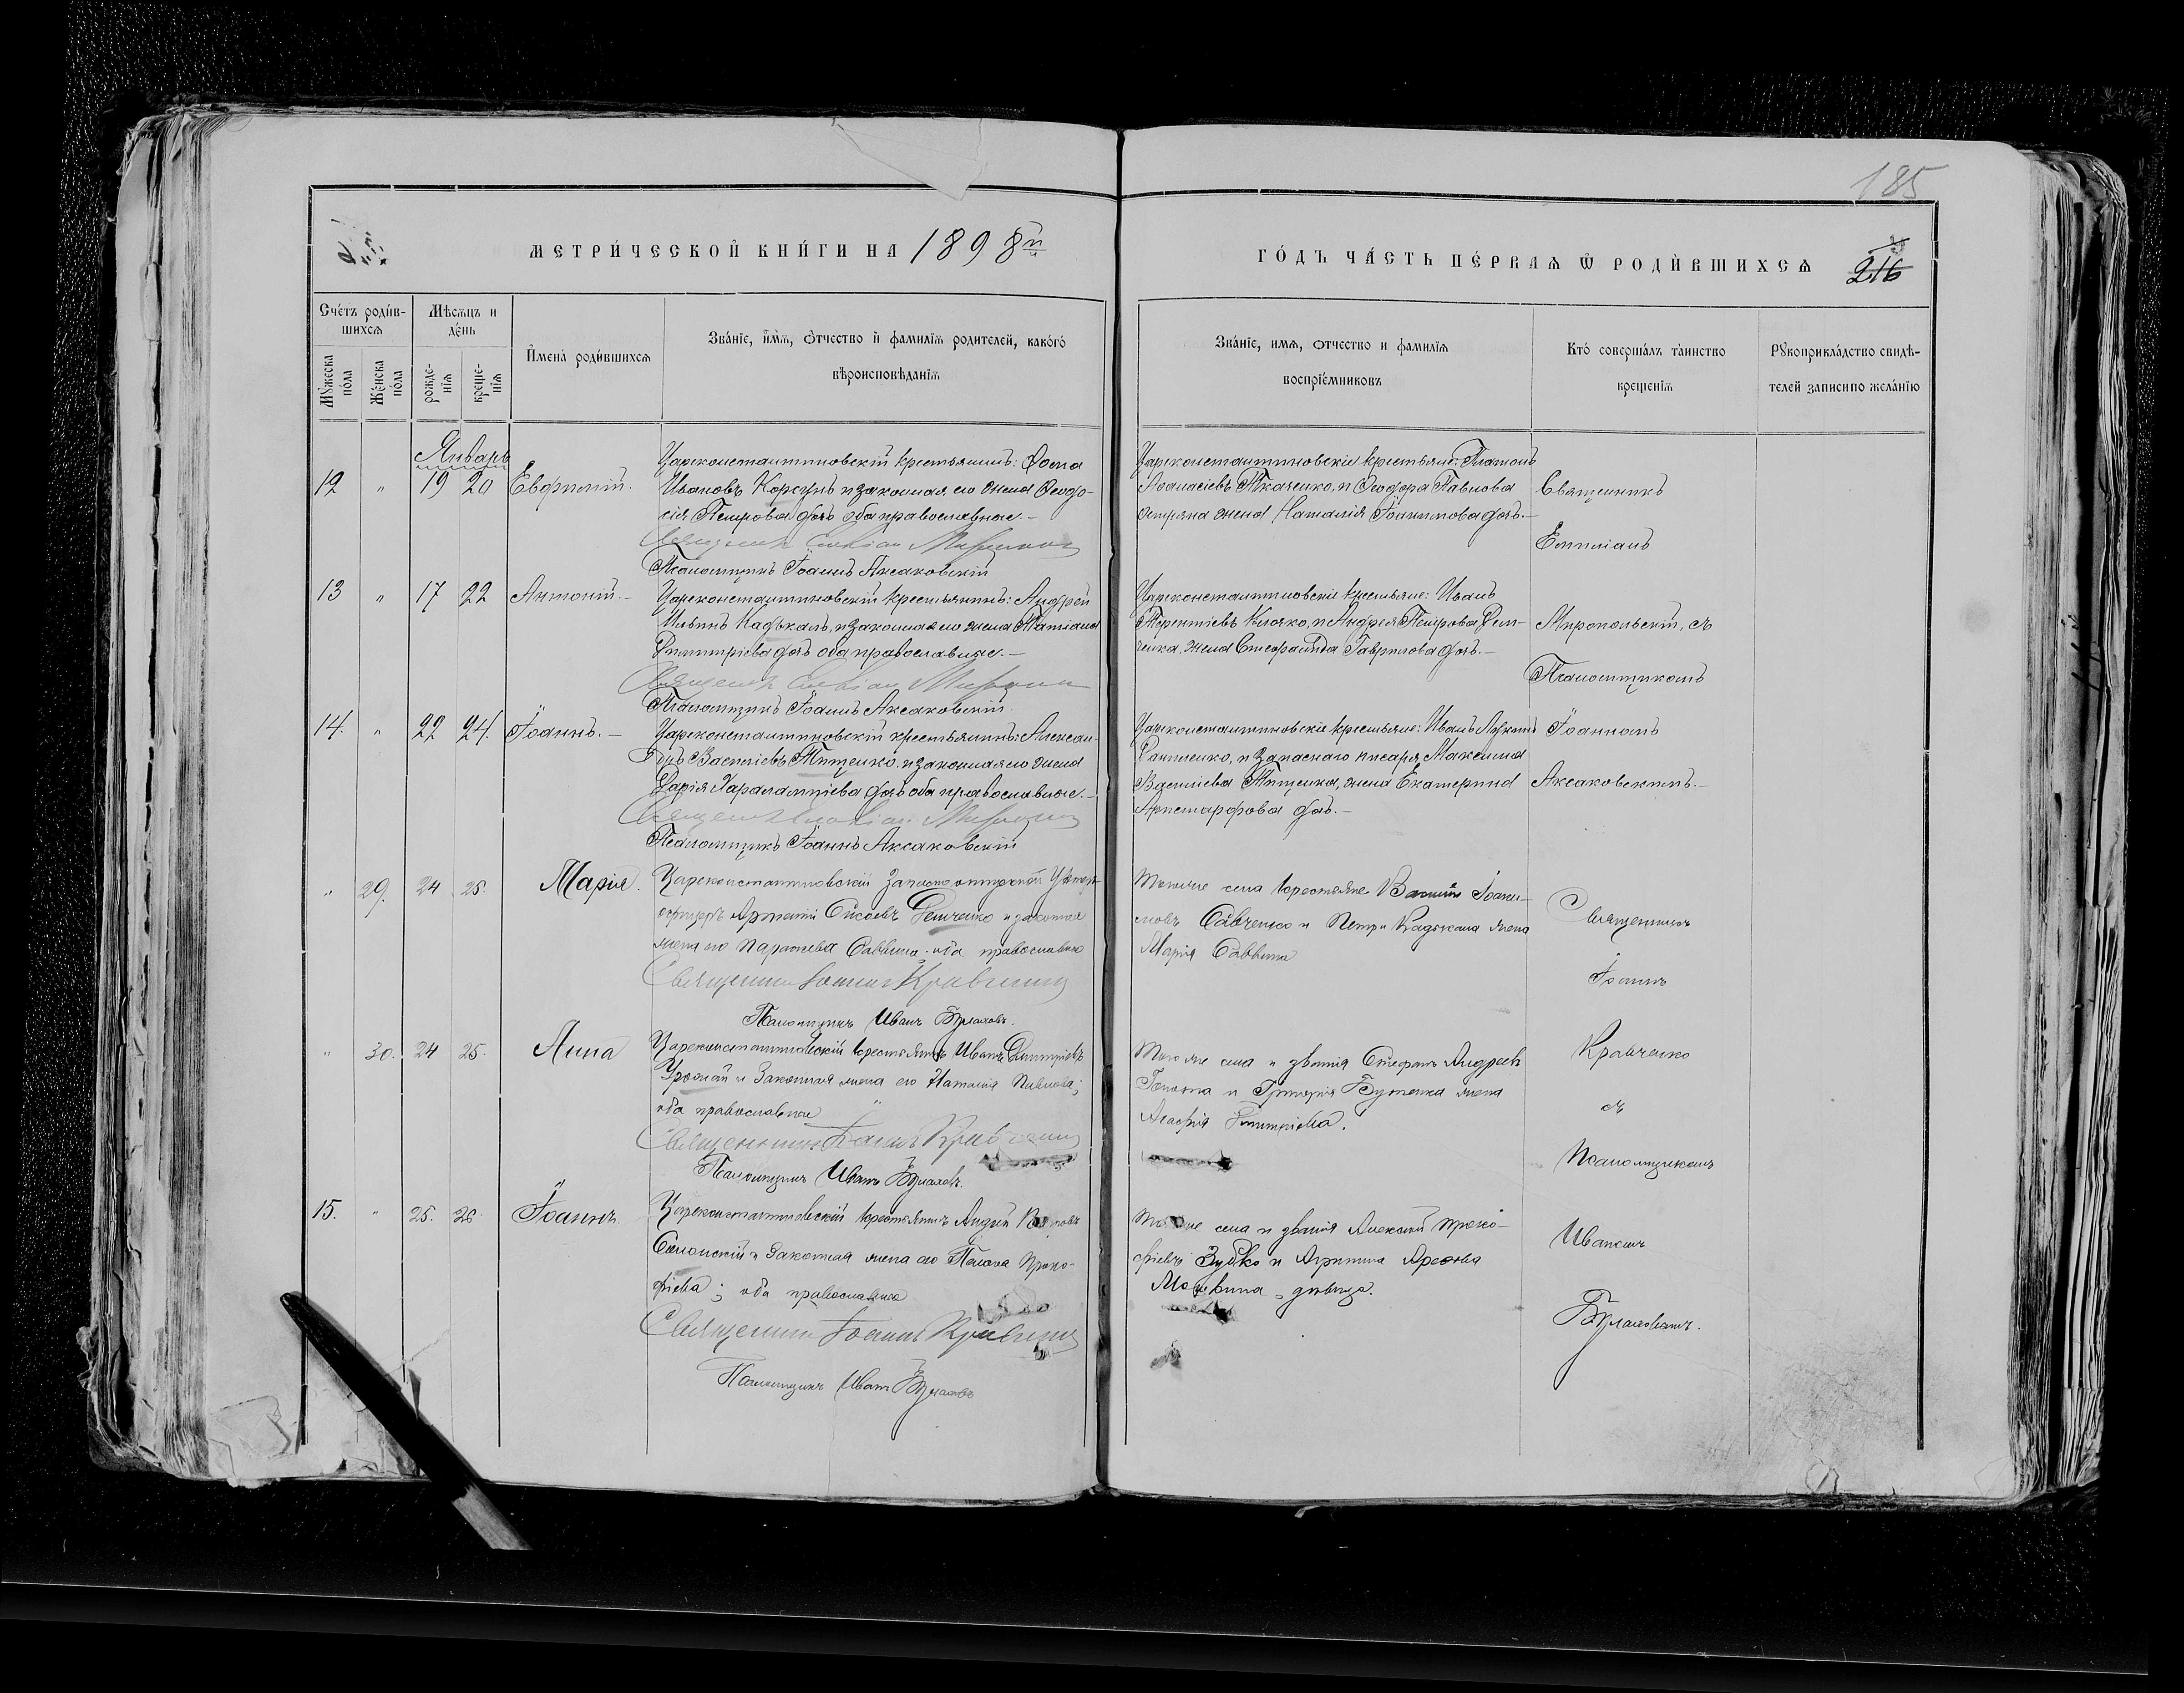 185
МЕТРИ́ЧЕСКОЙ КНИ́ГИ НА 1898й
ГО́ДЪ ЧА́СТЬ ПЕ́РВАѦ Ѿ РОДИ́ВШИХСѦ 216
Сче́тъ роди́в-
шихсѧ
Мѣсѧцъ и
де́нь
И҆мена̀ роди́вшихсѧ
Зва́нїе, и҆́мѧ, ѻ҆́тчество и҆ фамилїѧ родителей, како́гѡ
вѣроисповѣданїѧ
Мꙋ́жеска
по́ла
Же́нска
по́ла
рожде́-
нїѧ
креще-
нїѧ
Зва́нїе, имѧ, ѻтчество и фамилїѧ
воспрїе́мниковъ
Кто̀ соверша́лъ та́инство
крещенїѧ
Рꙋкоприкла́дство свидѣ-
телей записи по жела́нїю
Январь
12 " 19 20 Евфимій.
Цареконстантиновскій крестьянинъ: Фома
Ивановъ Корсунъ и законная его жена Феодо-
сія Петрова дочь оба православные.-
Псаломщикъ Іоаннъ Аксаковскій
Цареконстантиновскіе крестьяне: Платонъ
Афанасіевъ Ткаченко, и Феодора Павлова
жена Наталія Іоаннова дочь.-
Священникъ
Емиліанъ
13 " 17 22 Антоній.-
Цареконстантиновскій крестьянинъ: Андрей
Ильинъ Кадькалъ, и законная его жена Татіана
Димитріева дочь оба православные.-
Псаломщикъ Іоаннъ Аксаковскій
Цареконстантиновскіе крестьяне: Иванъ
Терентіевъ Клочко, и Андрея Петрова Дем-
ченка, жена Стефанида Гаврилова дочь.-
Миропольскій, съ
Псаломщикомъ
14. " 22 24. Іоаннъ.-
Цареконстантиновскій крестьянинъ: Алексан-
дръ Василіевъ Тищенко, и законная его жена
Дарія Харалампіева дочь оба православные.-
Псаломщикъ Іоаннъ Аксаковскій
Цареконстантиновскіе крестьяне: Иванъ
и запаснаго писаря Максима
Василіева Тищенка, жена Екатерина
Аристархова дочь.-
Іоанномъ
Аксаковскимъ.-
" 29. 24 25. Марія.
Цареконстантиновскій запасно
офицеръ Сисоевъ Демченко и законная
жена его Параскева Саввина оба православные
Священникъ Іоаннъ Кравченко
Псаломщикъ Иванъ Булаховъ.
Того же села крестьяне Василій Іоан-
новъ Савченко и Петра Кадькала жена
Марія Саввина
Священникъ
Іоаннъ
" 30. 24 25. Анна
Цареконстантиновскій крестьянинъ Иванъ Димитріевъ
Урожай и Законная жена его Наталія Павлова;
оба православные
Священникъ Іоаннъ Кравченко
Псаломщикъ Иванъ Булаховъ.
Того же села и званія Стефанъ Андреевъ
и Григорія Бутенка жена
Агафія Димитріева.
Кравченко
съ
Псаломщикомъ
15. " 25. 26. Іоаннъ.
Цареконстантиновскій крестьянинъ Андрей
и Законная жена его Пелагея Проко-
фіева; оба православные
Священникъ Іоаннъ Кравченко
Псаломщикъ Иванъ Булаховъ
Того же села и званія Алексій Проко-
фіевъ Зубко и Агриппина
дѣвица.
Иваномъ
Булаховымъ.